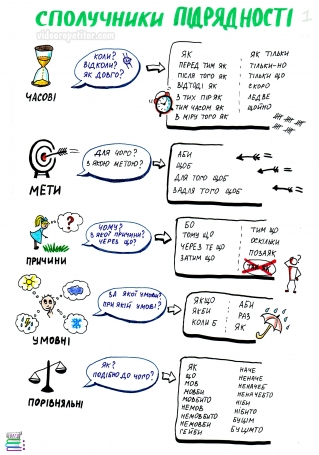 СПОЛУЧНИКИ ПІДРЯДНОСТІ
1
КОЛИ?
ВІДКОЛИ?
ЯК ДОВГО?
ЧАСОВІ
ЯК
ПЕРЕД ТИМ ЯК
ПІСЛЯ ТОГО ЯК
ВІДТОДІ ЯК
З ТИХ ПІР ЯК
ТИМ ЧАСОМ ЯК
В МІРУ ТОГО ЯК
ЯК ТІЛЬКИ
ТІЛЬКИ-НО
ТІЛЬКИ ЩО
СКОРО
ЛЕДВЕ
ЩОЙНО
ДЛЯ ЧОГО?
З ЯКОЮ МЕТОЮ?
МЕТИ
АБИ
ЩОБ
ДЛЯ ТОГО ЩОБ
ЗАДЛЯ ТОГО ЩОБ
ЧОМУ?
З ЯКОЇ ПРИЧИНИ?
ЧЕРЕЗ ЩО?
ПРИЧИНИ
БО
ТОМУ ЩО
ЧЕРЕЗ ТЕ ЩО
ЗАТИМ ЩО
ТИМ ЩО
ОСКІЛЬКИ
ПОЗАЯК
ЗА ЯКОЇ УМОВИ?
ПРИ ЯКІЙ УМОВІ?
УМОВНІ
ЯКЩО
ЯКБИ
КОЛИ Б
АБИ
РАЗ
ЯК
ЯК?
ПОДІБНО ДО ЧОГО?
ПОРІВНЯЛЬНІ
ЯК
ЩО
МОВ
МОВБИ
МОВБИТО
НЕМОВ
НЕМОВБИТО
НЕМОВБИ
ГЕЙБИ
НАЧЕ
НЕНАЧЕ
НЕНАЧЕБ
НЕНАЧЕБТО
НІБИ
НІБИТО
БУЦІМ
БУЦІМТО